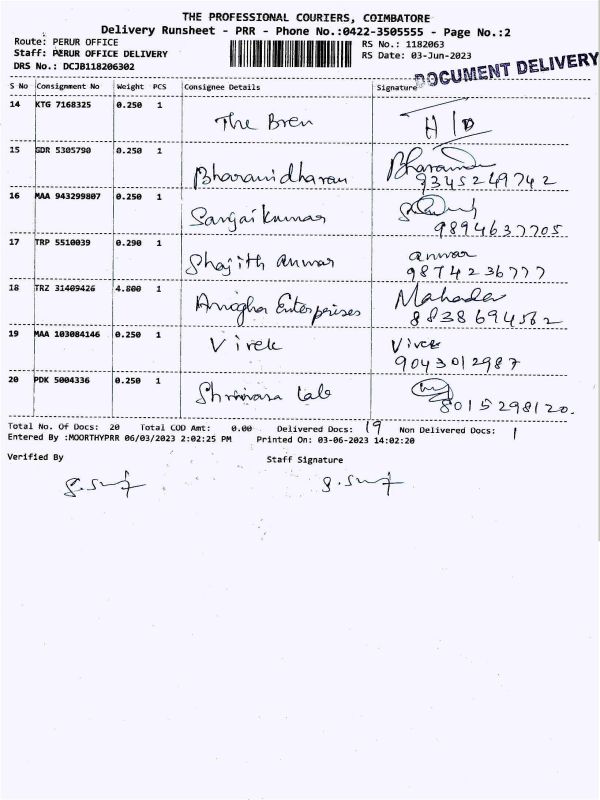 THE PROFESSIONAL COURIERS, COIMBATORE
Delivery Runsheet - PRR - Phone No.:0422-3505555 - Page No.:2
Route: PERUR OFFICE RS No.: 1182063
Staff: PERUR OFFICE DELIVERY RS Date: 03-Jun-2023
DRS No.: DCJB118206302
DOCUMENT DELIVERY
S No Consignment No Weight PCS Consignee Details Signature
14 KTG 7168325 0.250 1
The Bren H/D
15 GDR 5305790 0.250 1
Bharanidharan 9345249742
16 MAA 943299807 0.250 1
Sanjai Kumar 9894637705
17 TRP 5510039 0.290 1 anwar
Shajith anwar 9874236777
18 TRZ 31409426 4.800 1 Mahadev
Anugha Enterprises 8838694562
19 MAA 103084146 0.250 1
Vivek Vivek
9043012987
20 PDK 5004336 0.250 1
Shrinivasa Lab 8015298120.
Total No. Of Docs: 20 Total COD Amt: 0.00 Delivered Docs: 19 Non Delivered Docs: 1
Entered By :MOORTHYPRR 06/03/2023 2:02:25 PM Printed On: 03-06-2023 14:02:20
Verified By Staff Signature